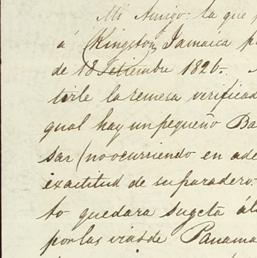 Mi Amigo: la que
á Kingston, Jamaica p
de 18 Setiembre 1826.
tirle la remesa verificad
qual hay un pequeño Ba
sar (no ocurriendo en ade
exactitud de su paradero.
to quedara sugeta ál
por las vias de Panama